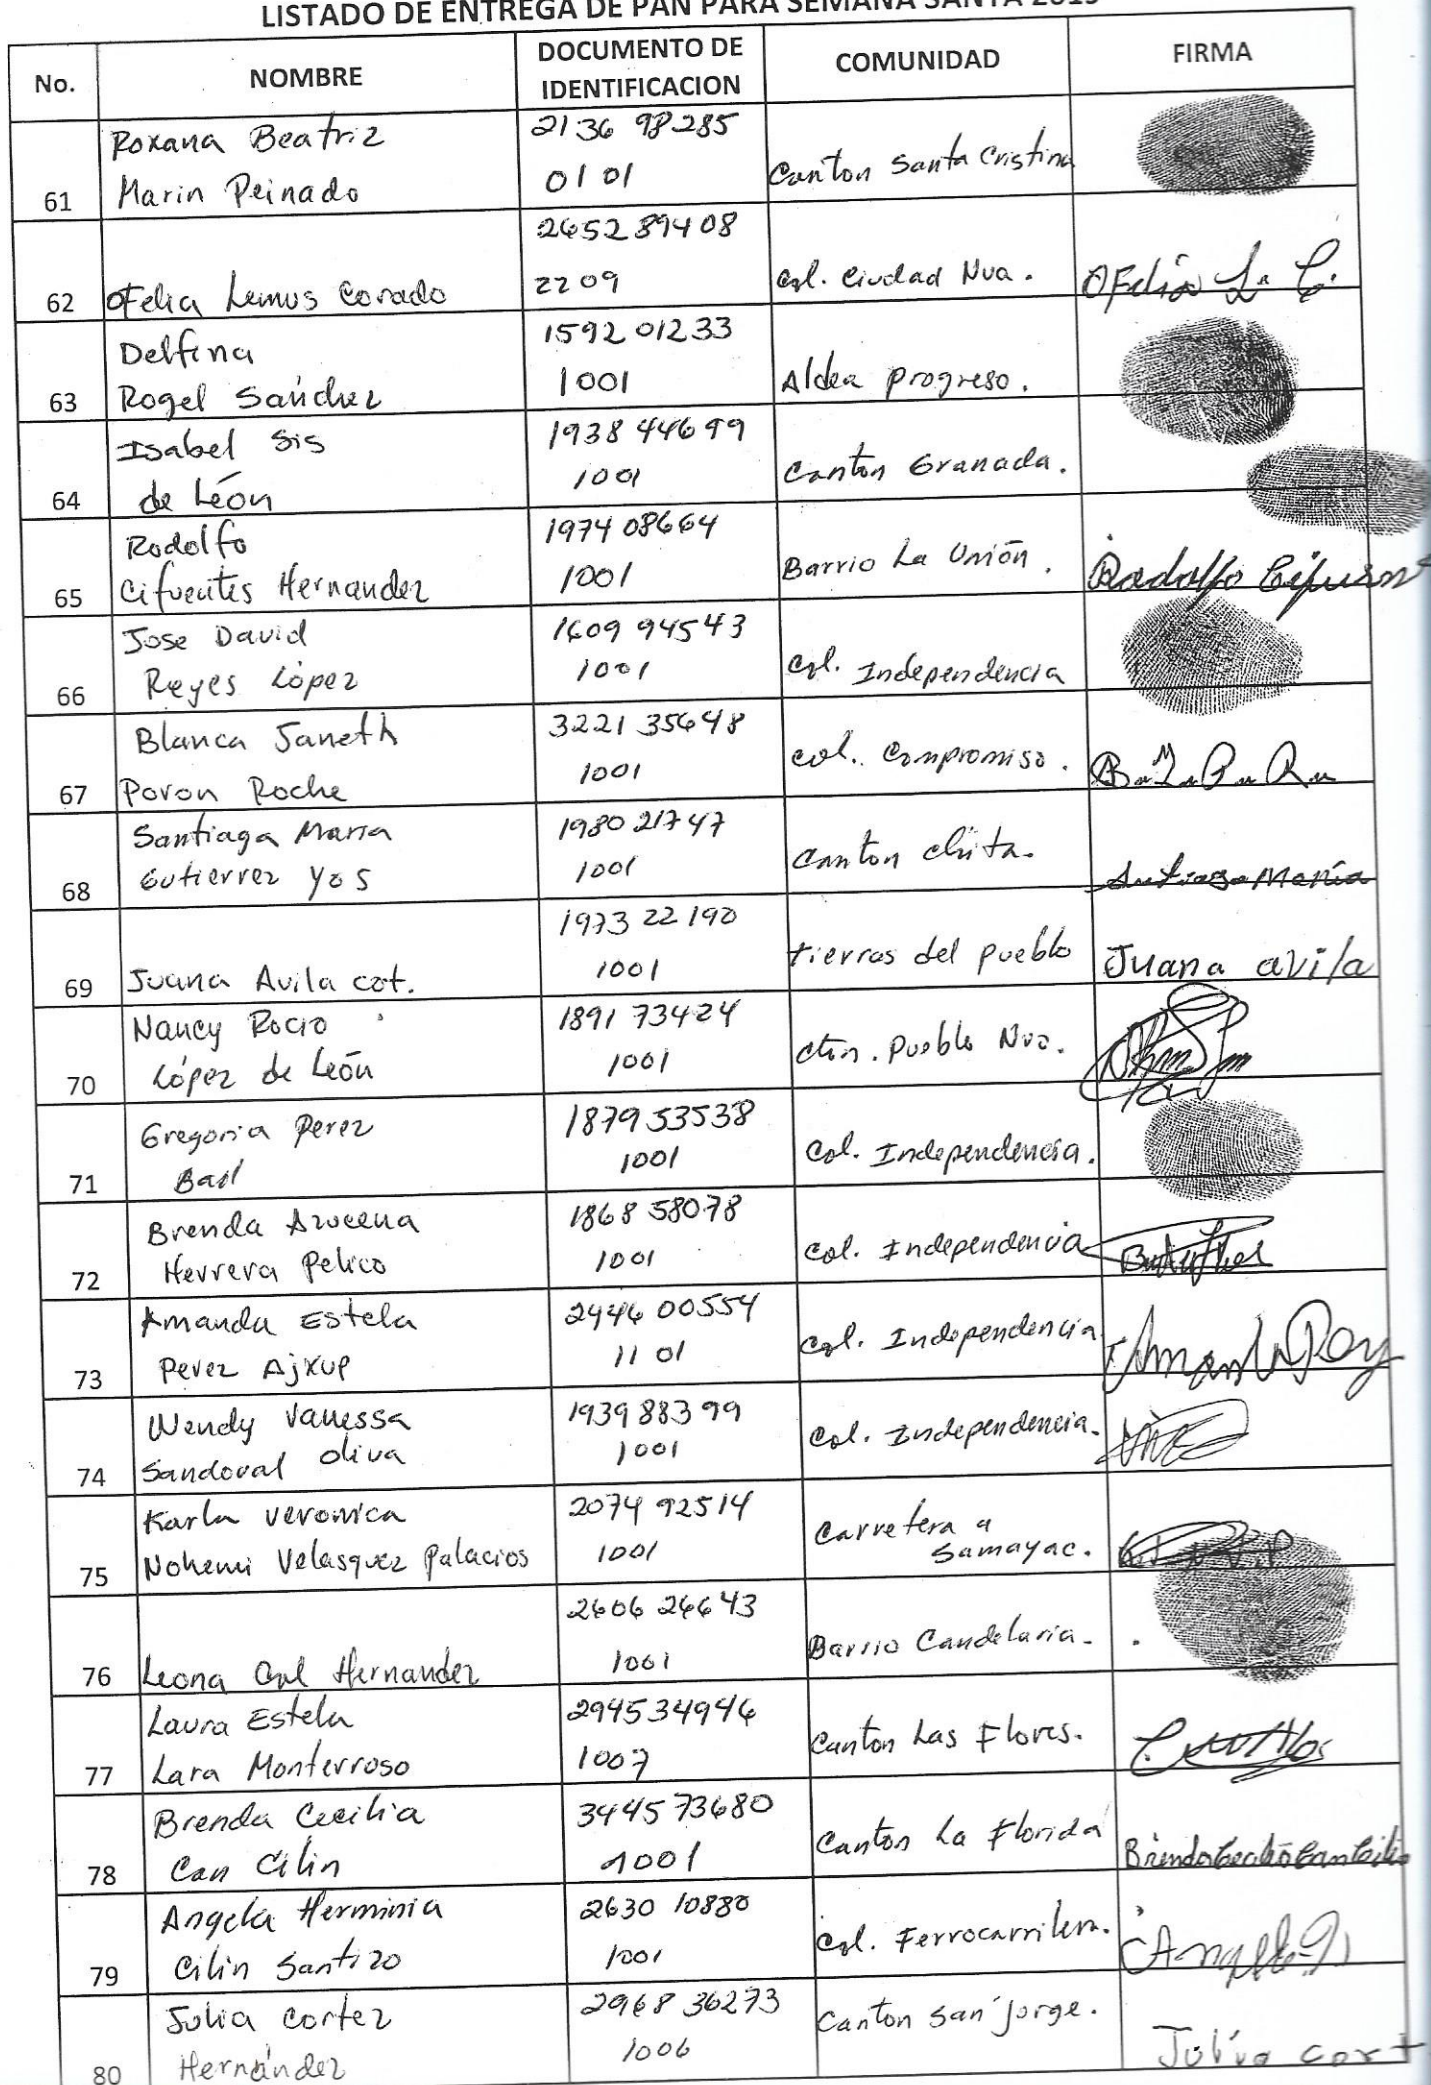 LISTADO DE ENTREGA DE PAN PARA SEMANA SANTA 2019
No. NOMBRE DOCUMENTO DE IDENTIFICACION COMUNIDAD FIRMA
61 Roxana Beatriz Marin Peinado 2136 98285 0101 Canton Santa Cristina
62 Ofelia Lemus Corado 2652 89408 2209 Col. Ciudad Nva. OFelia L. C.
63 Delfina Rogel Sánchez 1592 01233 1001 Aldea Progreso.
64 Isabel Sis de León 1938 44699 1001 Canton Granada.
65 Rodolfo Cifuentes Hernandez 1974 08664 1001 Barrio La Unión. Rodolfo Cifuent
66 Jose David Reyes López 1609 94543 1001 Col. Independencia
67 Blanca Janeth Poron Roche 3221 35648 1001 Col. Compromiso.
68 Santiaga Maria Gutierrez Yos 1980 21747 1001 Canton Chita. María
69 Juana Avila cot. 1973 22190 1001 tierras del pueblo Juana avila
70 Nancy Rocio López de León 1891 73424 1001 Ctón. Pueblo Nvo.
71 Gregoria Perez 1879 53538 1001 Col. Independencia.
72 Brenda Azucena Herrera Pelico 1868 58078 1001 Col. Independencia
73 Amanda Estela Perez Ajxup 2446 00554 1101 Col. Independencia
74 Wendy Vanessa Sandoval Oliva 1939 88399 1001 Col. Independencia.
75 Karla Veronica Nohemi Velasquez Palacios 2074 92514 1001 Carretera a Samayac.
76 Leona Hernandez 2606 26643 1001 Barrio Candelaria.
77 Laura Estela Lara Monterroso 2945 34946 1007 Canton Las Flores.
78 Brenda Cecilia Can Cilin 3445 73680 1001 Canton La Florida Brenda Cecilia Can Cilin
79 Angela Herminia Cilin Santizo 2630 10880 1001 Col. Ferrocarrilera.
80 Julia Cortez Hernández 2968 36273 1006 Canton San Jorge. Julia cort